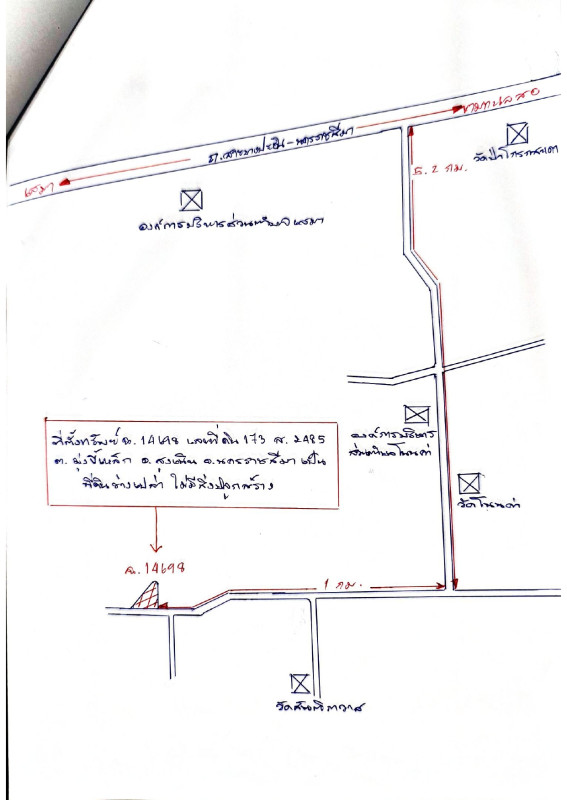 ขามทะเลสอ
ถ.สายบางปะอิน-นครราชสีมา
วัดป่าโกรกสะเดา
5.2 กม.
เสมา
องค์การบริหารส่วนตำบลเสมา
ที่ตั้งทรัพย์ ฉ. 14698 เลขที่ดิน 173 ส. 2485
ต. มุ่งขี้เหล็ก อ. สูงเนิน จ. นครราชสีมา เป็น
ที่ดินว่างเปล่า ไม่มีสิ่งปลูกสร้าง
องค์การบริหาร
ส่วนตำบลโนนค่า
วัดโนนค่า
ฉ. 14698
1 กม.
วัดสันติกาวาส